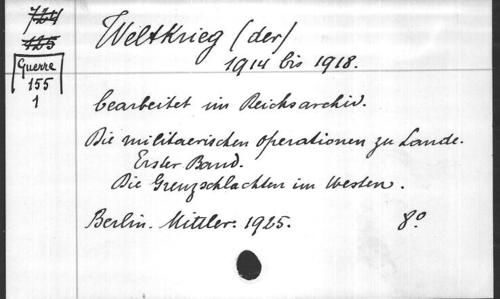 724
125
Guerre
155
1
Weltkrieg (der)
1914 bis 1918.
bearbeitet im Reichsarchiv.
Die militaerischen Operationen zu Lande.
Erster Band.
Die Grenzschlachten im Westen.
Berlin. Mittler. 1925. 8°